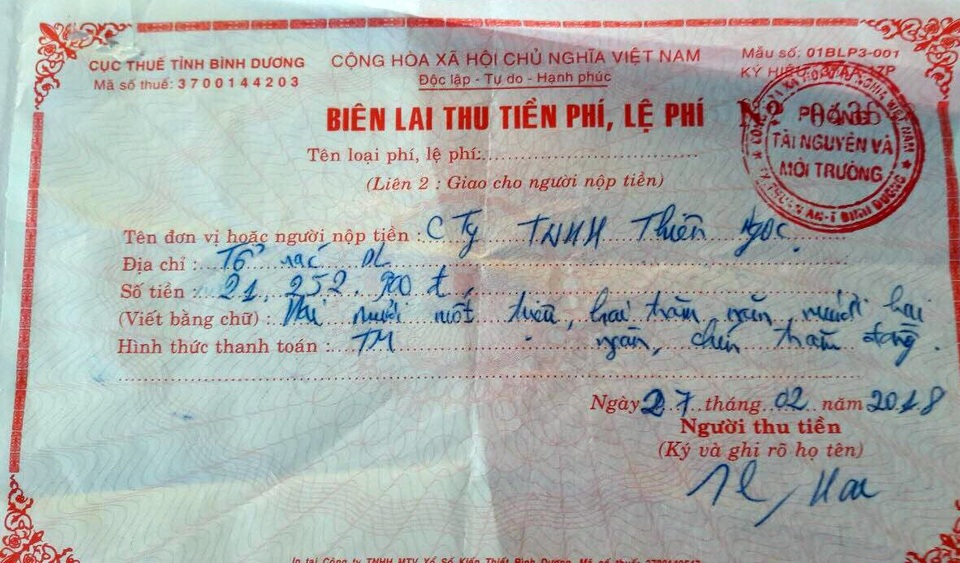 CỤC THUẾ TỈNH BÌNH DƯƠNG
Mã số thuế: 3700144203
CỘNG HÒA XÃ HỘI CHỦ NGHĨA VIỆT NAM
Độc lập - Tự do - Hạnh phúc
Mẫu số: 01BLP3-001
KÝ HIỆU
BIÊN LAI THU TIỀN PHÍ, LỆ PHÍ
Nº
PHÒNG
TÀI NGUYÊN VÀ
MÔI TRƯỜNG
Tên loại phí, lệ phí:
(Liên 2 : Giao cho người nộp tiền)
Tên đơn vị hoặc người nộp tiền : C Ty TNHH Thiên Ngọc.
Địa chỉ :
Số tiền : 21,252.900 đ,
(Viết bằng chữ) : Hai mươi một triệu, hai trăm năm mươi hai
Hình thức thanh toán : TM ngàn, chín trăm đồng.
Ngày 27 tháng 02 năm 2018
Người thu tiền
(Ký và ghi rõ họ tên)
In tại Công ty TNHH MTV Xổ Số Kiến Thiết Bình Dương. Mã số thuế: